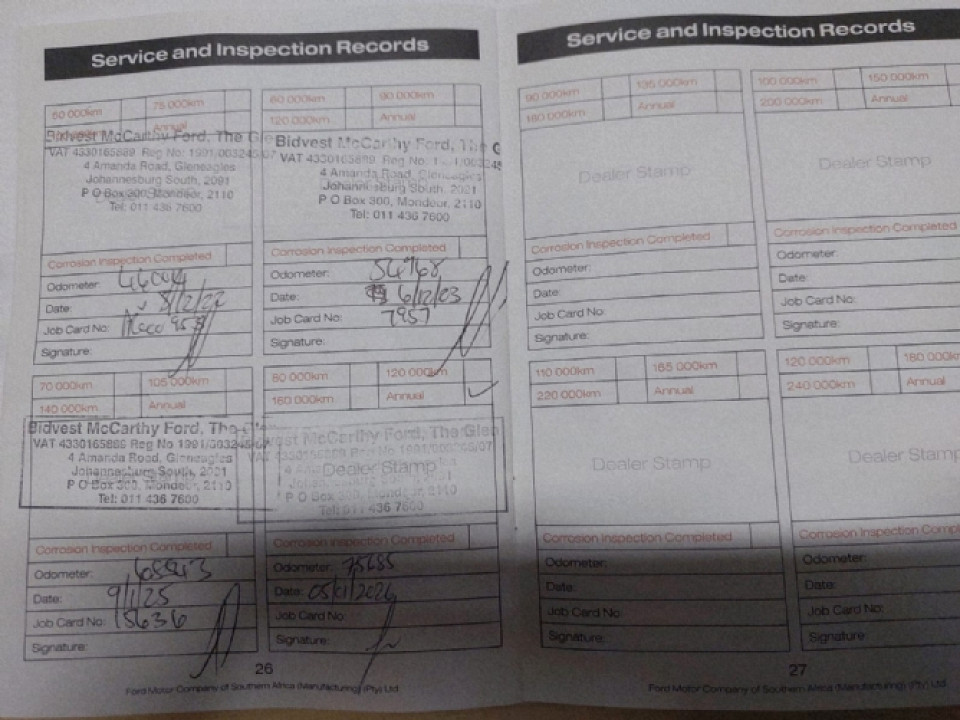 Service and Inspection Records
60 000km
75 000km
Annual
Bidvest McCarthy Ford, The Gle
VAT 4330165889 Reg No: 1991/003245/07
4 Amanda Road, Gleneagles
Johannesburg South, 2091
P O Box 300, Mondeor, 2110
Tel: 011 436 7600
Corrosion Inspection Completed
Odometer:
Date: 8/12/22
Job Card No:
Signature:
60 000km
90 000km
120 000km
Annual
Bidvest McCarthy Ford, The G
VAT 4330165889 Reg No:
4 Amanda Road, Gleneagles
Johannesburg South, 2091
P O Box 300, Mondeor, 2110
Tel: 011 436 7600
Corrosion Inspection Completed
Odometer: 54768
Date: 6/12/23
Job Card No: 7957
Signature:
70 000km
105 000km
140 000km
Annual
Bidvest McCarthy Ford, The Gle
VAT 4330165889 Reg No 1991/003245
4 Amanda Road, Gleneagles
Johannesburg South, 2091
P O Box 300, Mondeor, 2110
Tel: 011 436 7600
Corrosion Inspection Completed
Odometer:
Date: 9/1/25
Job Card No: 15636
Signature:
80 000km
120 000km
160 000km
Annual ✓
McCarthy Ford, The Glen
Dealer Stamp
P O Box 300, Mondeor, 2110
Tel: 011 436 7600
Corrosion Inspection Completed
Odometer: 75685
Date: 05/01/2026
Job Card No:
Signature:
26
Ford Motor Company of Southern Africa (Manufacturing) (Pty) Ltd
Service and Inspection Records
90 000km
135 000km
180 000km
Annual
Dealer Stamp
Corrosion Inspection Completed
Odometer:
Date:
Job Card No:
Signature:
100 000km
150 000km
200 000km
Annual
Dealer Stamp
Corrosion Inspection Completed
Odometer:
Date:
Job Card No:
Signature:
110 000km
165 000km
220 000km
Annual
Dealer Stamp
Corrosion Inspection Completed
Odometer:
Date:
Job Card No:
Signature:
120 000km
180 000km
240 000km
Annual
Dealer Stamp
Corrosion Inspection Compl
Odometer:
Date:
Job Card No:
Signature:
27
Ford Motor Company of Southern Africa (Manufacturing) (Pty) Ltd